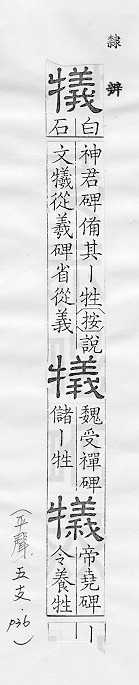 隸辨
犠
白
石
神君碑僃其丨牲(按)說
文犧從羲碑省從義
犠
魏受禪碑
儲丨牲
犠
帝堯碑丨
令養牲
(平聲.五支.p36)